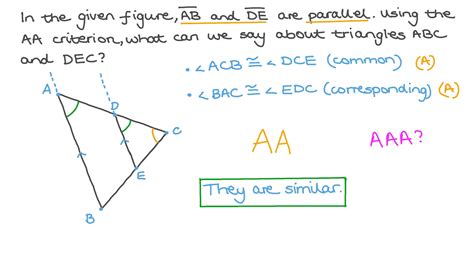 In the given figure, AB and DE are parallel. Using the
AA criterion, what can we say about triangles ABC
and DEC?
• ∠ACB ≅ ∠DCE (common) (A)
• ∠BAC ≅ ∠EDC (corresponding) (A)
A
D
C
E
B
AA
AAA?
They are similar.